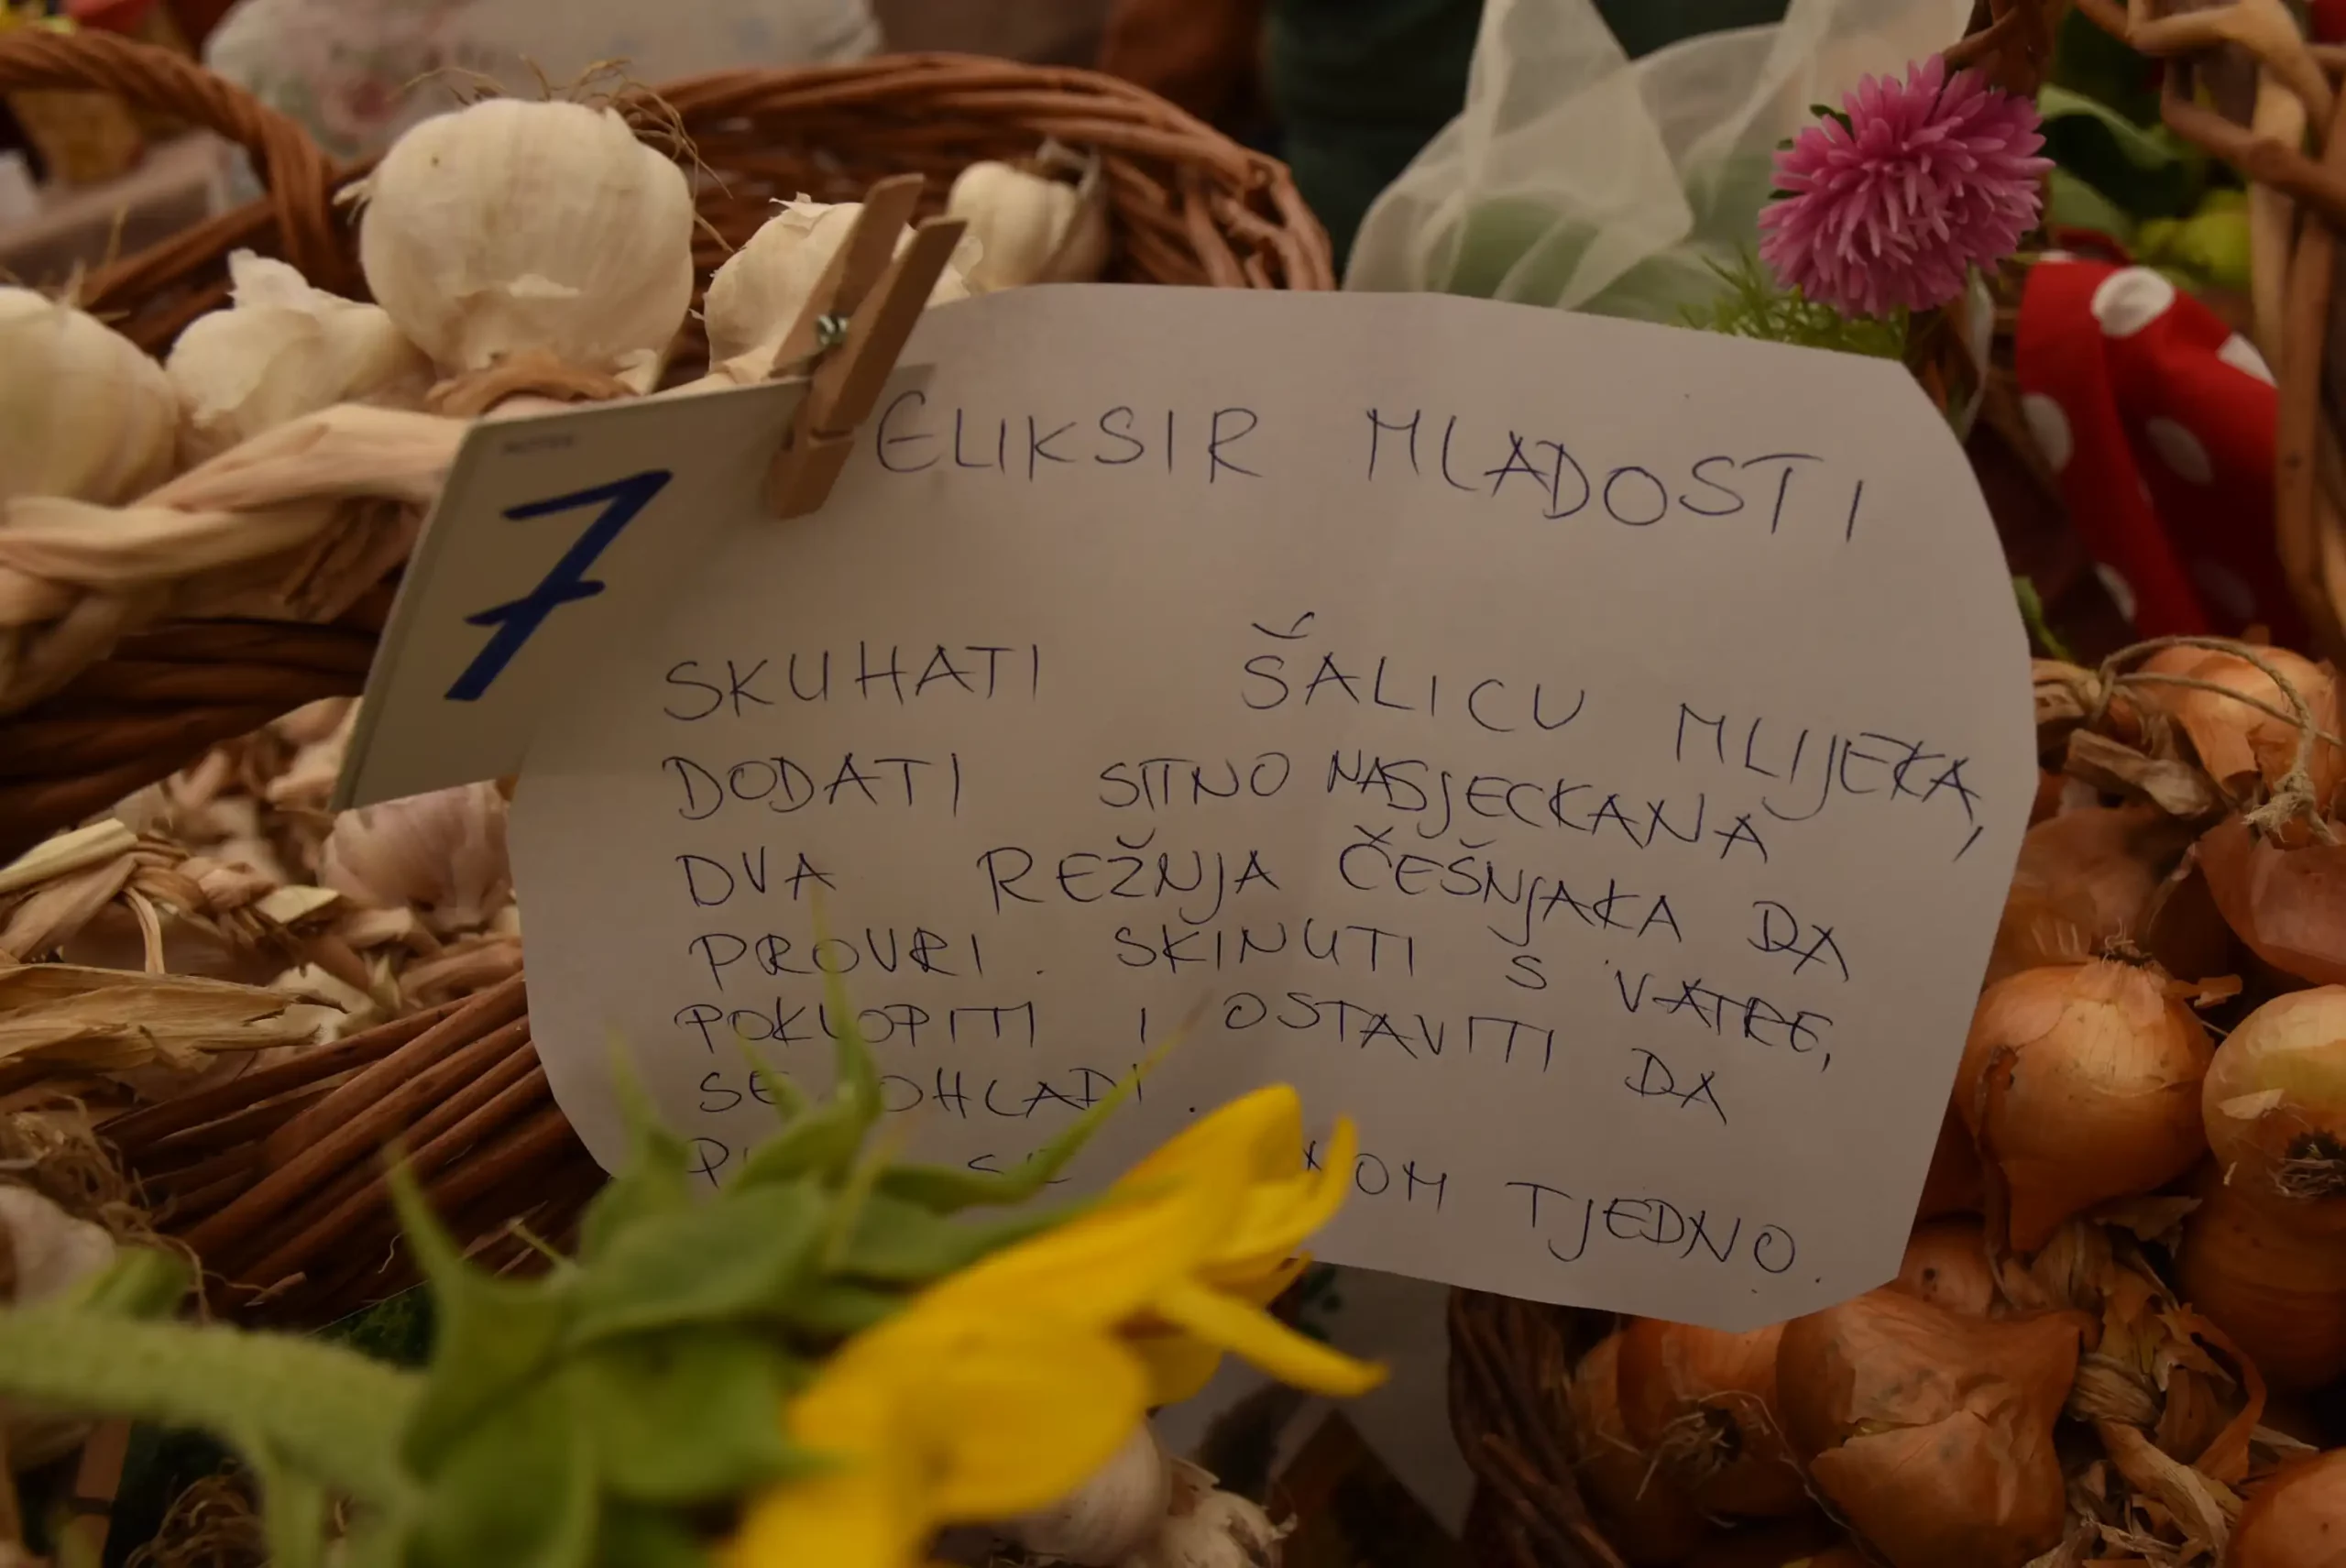 NOTES
7
ELIKSIR MLADOSTI
SKUHATI ŠALICU MLIJEKA,
DODATI SITNO NASJECKANA
DVA REŽNJA ČEŠNJAKA DA
PROVRI. SKINUTI S VATRE,
POKLOPITI I OSTAVITI DA
SE OHLADI.
TJEDNO.